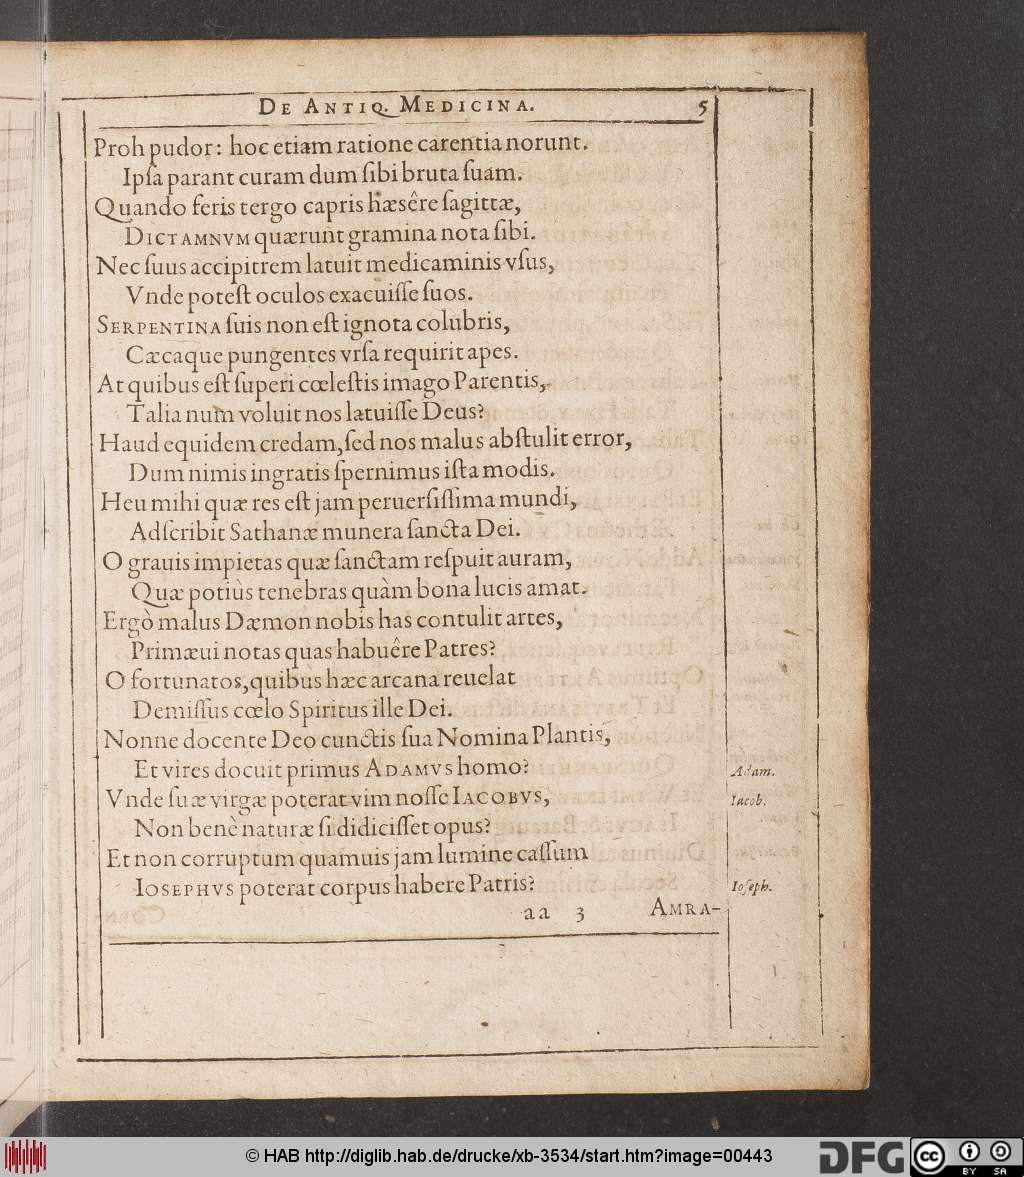 DE ANTIQ. MEDICINA. 5
Proh pudor: hoc etiam ratione carentia norunt.
Ipſa parant curam dum ſibi bruta ſuam.
Quando feris tergo capris hæsêre ſagittæ,
DICTAMNVM quærunt gramina nota ſibi.
Nec ſuus accipitrem latuit medicaminis vſus,
Vnde poteſt oculos exacuiſſe ſuos.
SERPENTINA ſuis non eſt ignota colubris,
Cæcaque pungentes vrſa requirit apes.
At quibus eſt ſuperi cœleſtis imago Parentis,
Talia num voluit nos latuiſſe Deus?
Haud equidem credam, ſed nos malus abſtulit error,
Dum nimis ingratis ſpernimus iſta modis.
Heu mihi quæ res eſt jam peruerſiſſima mundi,
Adſcribit Sathanæ munera ſancta Dei.
O grauis impietas quæ ſanctam reſpuit auram,
Quæ potiùs tenebras quàm bona lucis amat.
Ergò malus Dæmon nobis has contulit artes,
Primæui notas quas habuêre Patres?
O fortunatos, quibus hæc arcana reuelat
Demiſſus cœlo Spiritus ille Dei.
Nonne docente Deo cunctis ſua Nomina Plantis,
Et vires docuit primus ADAMVS homo?
Adam.
Vnde ſuæ virgæ poterat vim noſſe IACOBVS,
Iacob.
Non benè naturæ ſi didiciſſet opus?
Et non corruptum quamuis jam lumine caſſum
IOSEPHVS poterat corpus habere Patris?
Ioſeph.
aa 3 AMRA-
© HAB http://diglib.hab.de/drucke/xb-3534/start.htm?image=00443
DFG
cc BY SA